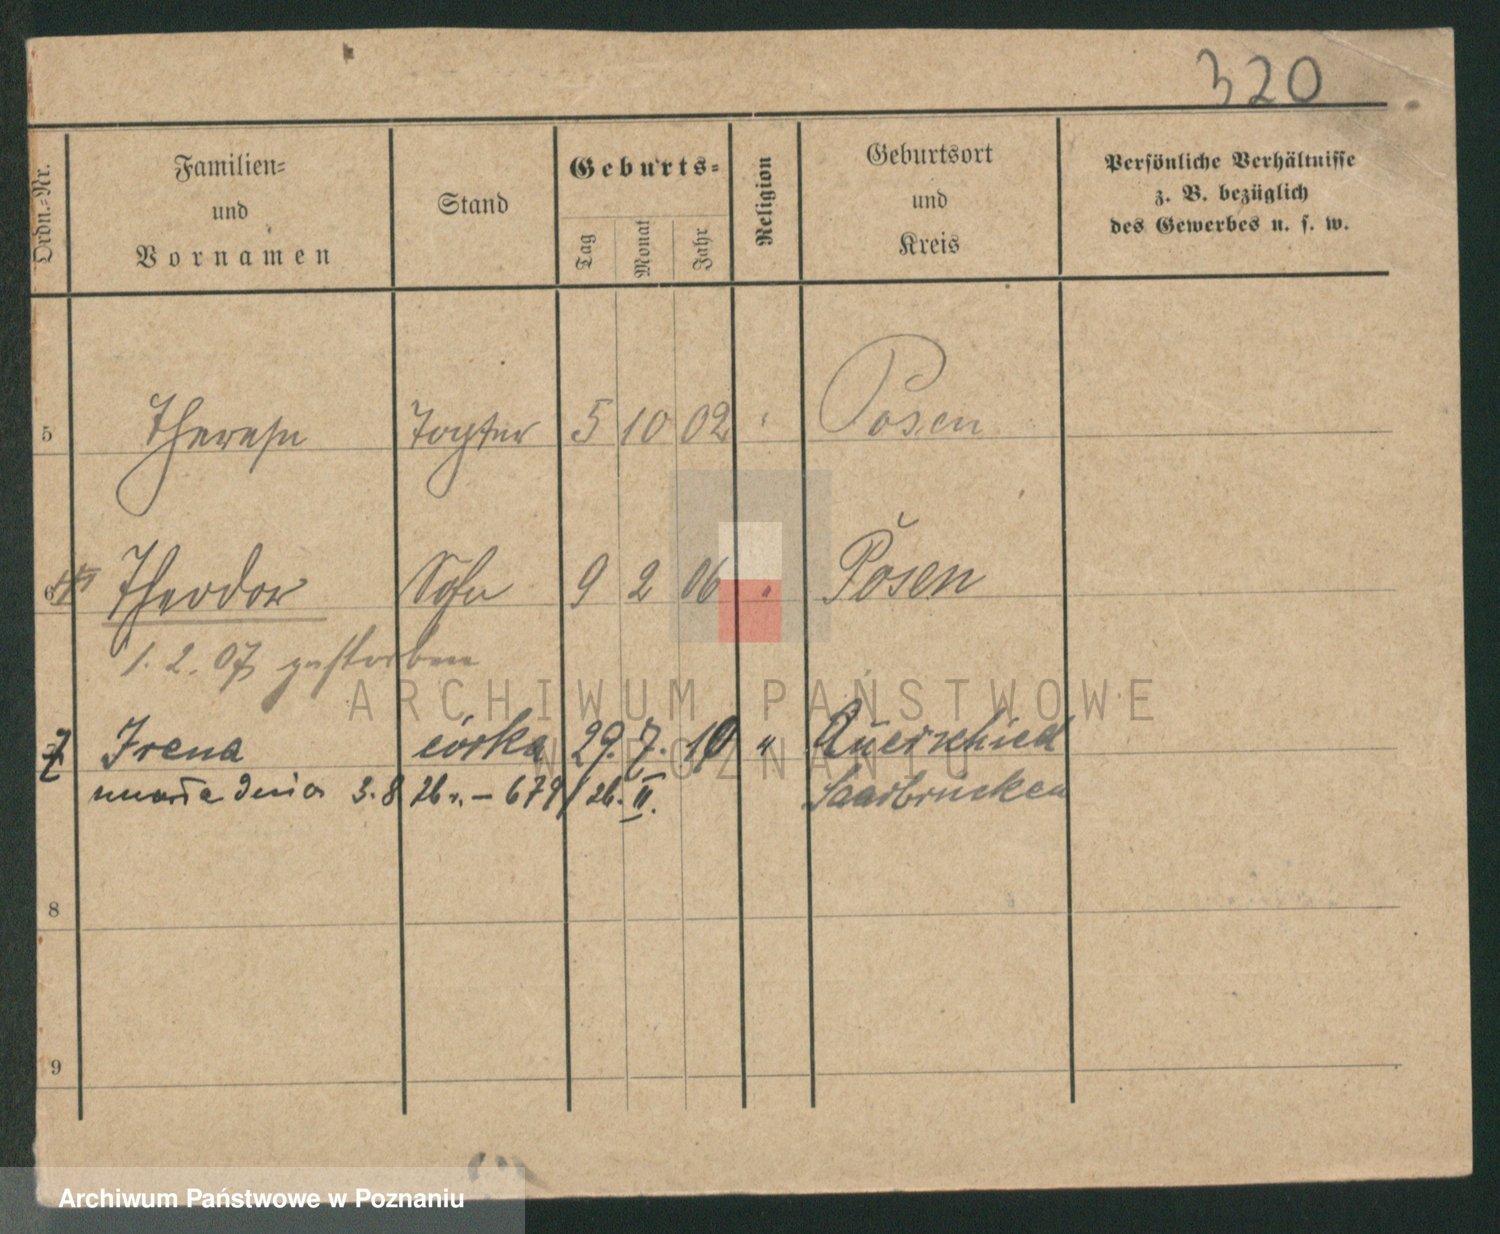 320
Ordn.-Nr.
Familien-
und
Vornamen
Stand
Geburts-
Tag
Monat
Jahr
Religion
Geburtsort
und
Kreis
Persönliche Verhältnisse
z. B. bezüglich
des Gewerbes u. s. w.
5 Therese Tochter 5 10 02 Posen
6 Theodor Sohn 9 2 06 " Posen
1. 2. 07 gestorben
7 Irena córka 29. 7. 10 " Quierschied
zmarła dnia 3.8 26 r. – 679/26. II. Saarbrücken
8
9
ARCHIWUM PAŃSTWOWE
W POZNANIU
Archiwum Państwowe w Poznaniu